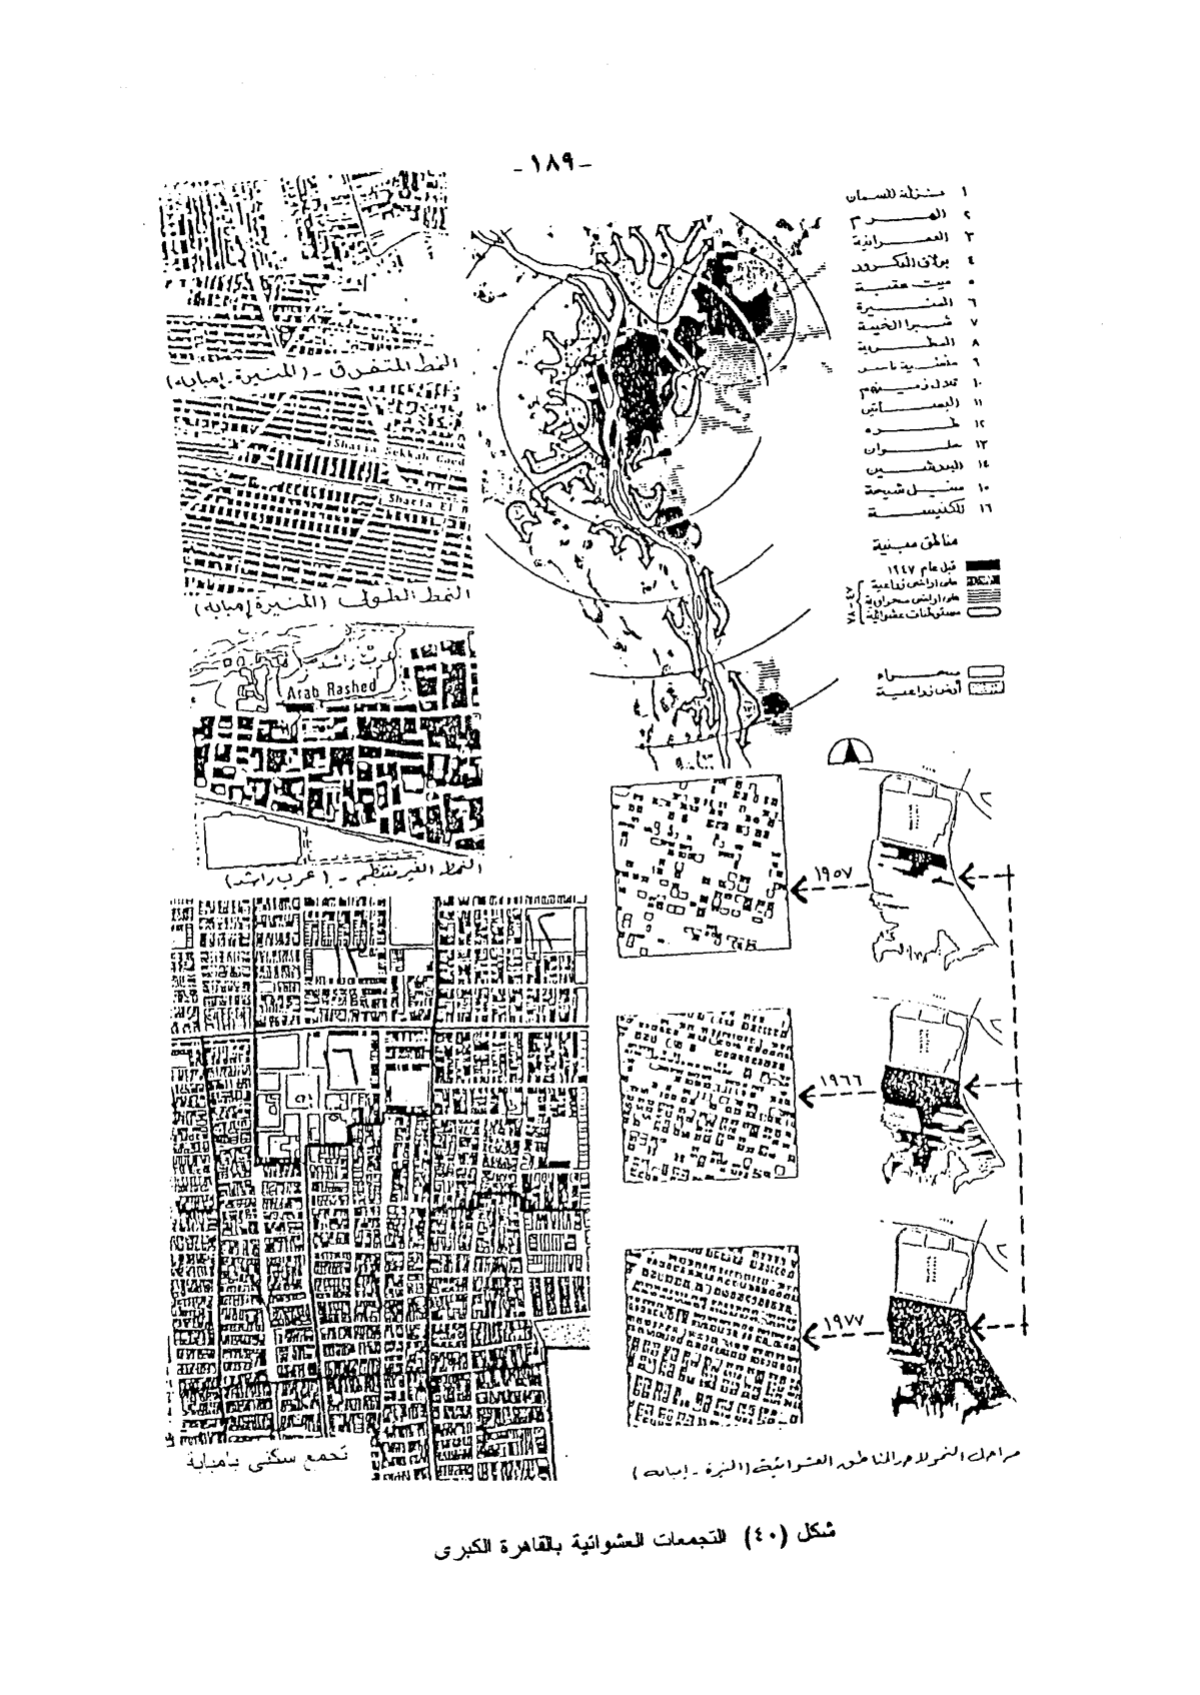 -١٨٩-
١ نزلة السمان
٢ الهرم
٣ العمرانية
٤ بولاق الدكرور
٥ ميت عقبة
٦ المنيرة
٧ شبرا الخيمة
٨ المطرية
٩ منشية ناصر
١٠ تلال زينهم
١١ البساتين
١٢ طره
١٣ حلوان
١٤ البدرشين
١٥ منيل شيحة
١٦ الكنيسة
مناطق مبنية
قبل عام ١٩٤٧
على اراضى زراعية
على اراضى صحراوية
مستوطنات عشوائية
٤٧-٧٨
صحراء
أرض زراعية
النمط المتفرق - (المنيرة - إمبابه)
Sharia Sekkah
Sharia El
النمط الطولى (المنيرة إمبابه)
عرب راشد
Arab Rashed
النمط الغير منتظم - (عرب راشد)
١٩٥٧
١٩٦٦
١٩٧٧
تجمع سكنى بامبابة
مراحل النمو لاحد المناطق العشوائية (المنيرة - إمبابه)
شكل (٤٠) التجمعات العشوائية بالقاهرة الكبرى